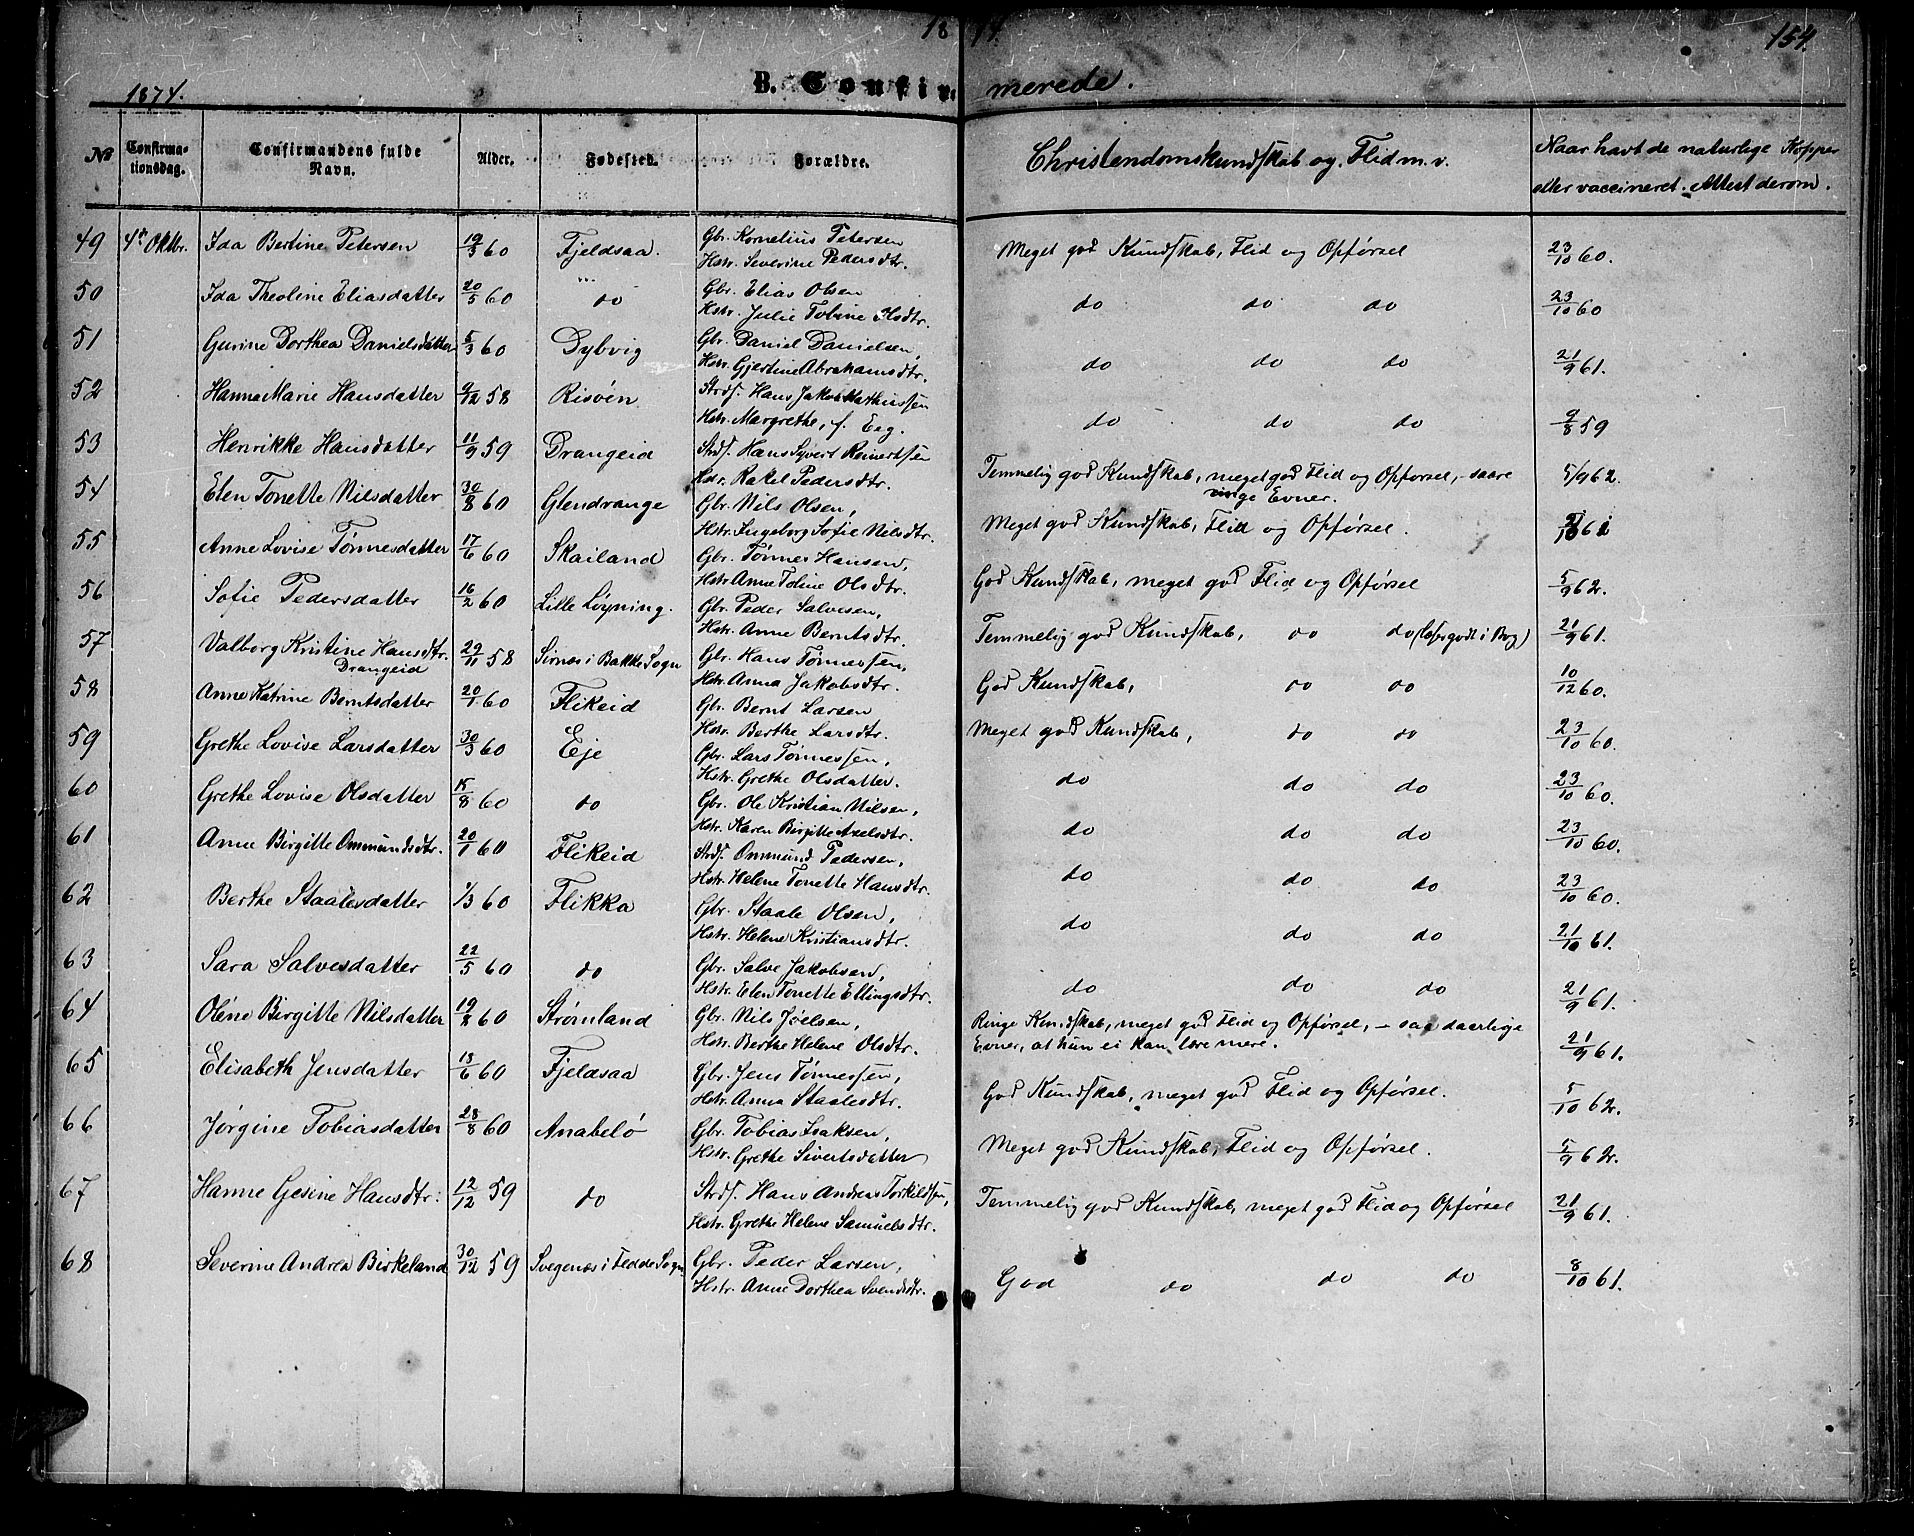 1874. 154.
1874. B. Confirmerede.
No Confirmationsdag. Confirmandens fulde Navn. Alder. Fødested. Forældre. Christendomskundskab og Flid m. v. Naar havt de naturlige Kopper eller vaccineret. Attest derom.
49 4de Oktbr. Ida Bertine Petersen 19/3 60 Fjeldsaa. Gbr. Kornelius Petersen Hstr. Severine Pedersdtr. Meget god Kundskab, Flid og Opførsel 23/10 60.
50 Ida Theoline Eliasdatter 20/5 60 do Gbr. Elias Olsen Hstr. Julie Tobine Olsdtr. do do do 23/10 60
51 Gurine Dorthea Danielsdatter 5/3 60 Dybvig Gbr. Daniel Danielsen, Hstr. Gjertine Abrahamsdtr. do do do 21/9 61.
52 Hanna Marie Hansdatter 9/12 58 Risøen Strds. Hans Jakob Mathissen Hstr. Margrethe, f. Eeg. do do do 9/8 59
53 Henrikke Hansdatter 11/9 59 Drangeid Strds. Hans Syvert Reinertsen Hstr. Rakel Pedersdtr. Temmelig god Kundskab, meget god Flid og Opførsel, - saare ringe Evner. 5/9 62.
54 Elen Tonette Nilsdatter 30/8 60 Glendrange Gbr. Nils Olsen, Hstr. Ingeborg Sofie Nilsdtr. Meget god Kundskab, Flid og Opførsel.
55 Anne Lovise Tønnesdatter 17/6 60 Skailand Gbr. Tønnes Hansen, Hstr. Anne Toline Olsdtr. God Kundskab, meget god Flid og Opførsel 5/9 62.
56 Sofie Pedersdatter 16/2 60 Lille Løyning. Gbr. Peder Salvesen, Hstr. Anne Berntsdtr. Temmelig god Kundskab, do do (læser godt i Bog) 21/9 61.
57 Valborg Kristine Hansdtr. Drangeid 29/11 58 Sirnæs i Bakke Sogn Gbr. Hans Tønnessen, Hstr. Anna Jakobsdtr. God Kundskab, do do 10/12 60.
58 Anne Katrine Berntsdatter 20/1 60 Flikeid Gbr. Bernt Larsen Hstr. Berthe Larsdtr. Meget god Kundskab, do do 23/10 60.
59 Grethe Lovise Larsdatter 30/3 60 Eje Gbr. Lars Tønnessen, Hstr. Grethe Olsdatter. do do do 23/10 60.
60 Grethe Lovise Olsdatter 15/8 60 do Gbr. Ole Kristian Nilsen, Hstr. Karen Birgitte Axelsdtr. do do do 23/10 60.
61 Anne Birgitte Ommundsdtr. 20/1 60 Flikeid Strds. Ommund Pedersen, Hstr. Helene Tonette Hansdtr. do do do 23/10 60.
62 Berthe Staalesdatter 1/3 60 Flikka Gbr. Staale Olsen, Hstr. Helene Kristiansdtr. do do do 21/10 61.
63 Sara Salvesdatter 22/5 60 do Gbr. Salve Jakobsen, Hstr. Elen Tonette Ellingsdtr. do do do 21/9 61.
64 Oléne Birgitte Nilsdatter 19/2 60 Strømland Gbr. Nils Joelsen, Hstr. Berthe Helene Olsdtr. Ringe Kundskab, meget god Flid og Opførsel, - saa daarlige Evner, at hun ei kan lære mere. 21/9 61.
65 Elisabeth Jensdatter 13/6 60 Fjeldsaa Gbr. Jens Tønnessen, Hstr. Anna Staalesdtr. God Kundskab, meget god Flid og Opførsel. 5/10 62.
66 Jørgine Tobiasdatter 28/8 60 Anabelø Gbr. Tobias Isaksen, Hstr. Grethe Sivertsdatter Meget god Kundskab, Flid og Opførsel. 5/9 62.
67 Hanne Gesine Hansdtr: 12/12 59 do Strds. Hans Andreas Torkildsen, Hstr. Grethe Helene Samuelsdtr. Temmelig god Kundskab, meget god Flid og Opførsel 21/9 61.
68 Severine Andrea Birkeland 30/12 59 Svegenæs i Fedde Sogn Gbr. Peder Larsen, Hstr. Anne Dorthea Svendsdtr. God do do do 8/10 61.